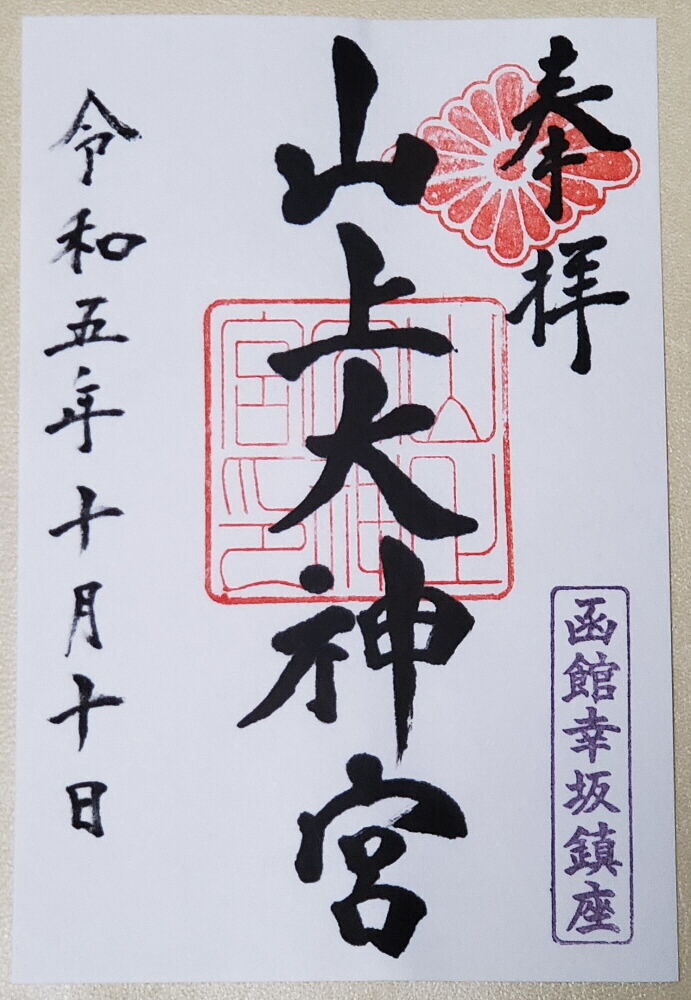 奉拝
函館幸坂鎮座
山上大神宮
令和五年十月十日